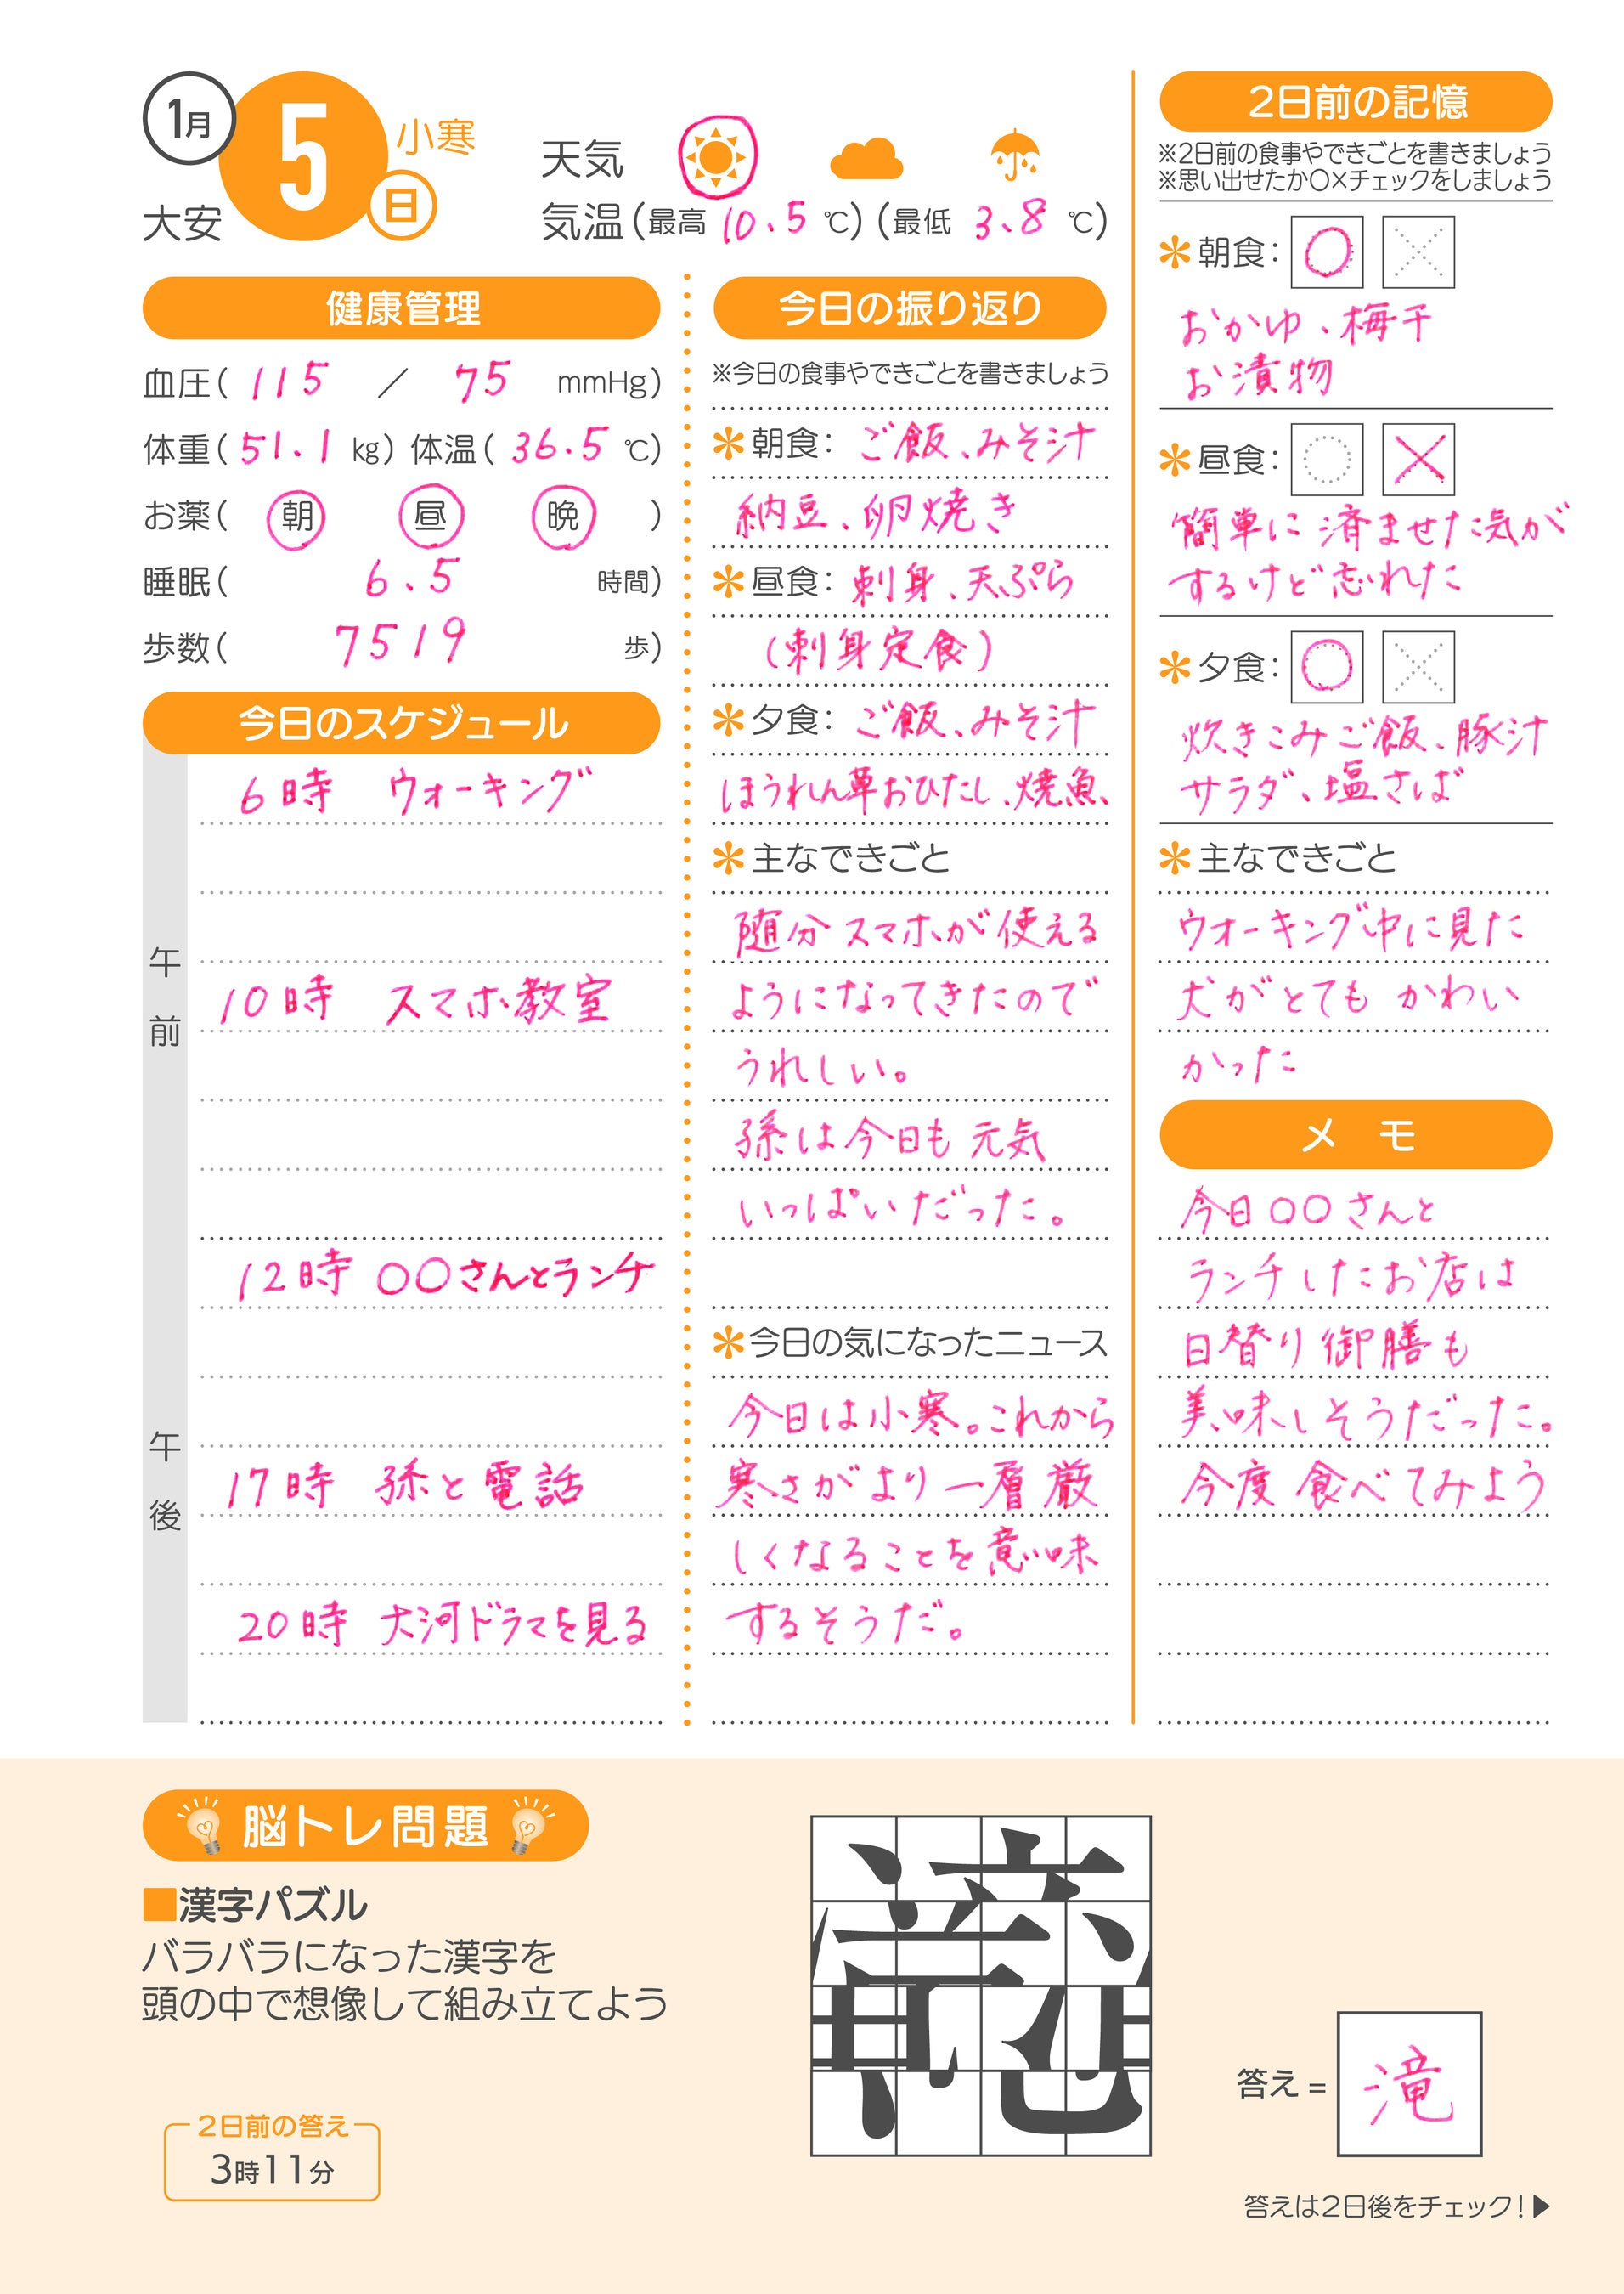 1月
5
小寒
日
大安
天気
気温(最高 10.5 ℃)(最低 3.8 ℃)
健康管理
血圧( 115 / 75 mmHg)
体重( 51.1 kg) 体温( 36.5 ℃)
お薬( 朝 昼 晩 )
睡眠( 6.5 時間)
歩数( 7519 歩)
今日のスケジュール
午前
6時 ウォーキング
10時 スマホ教室
午後
12時 〇〇さんとランチ
17時 孫と電話
20時 大河ドラマを見る
今日の振り返り
※今日の食事やできごとを書きましょう
*朝食: ご飯、みそ汁
納豆、卵焼き
*昼食: 刺身、天ぷら
(刺身定食)
*夕食: ご飯、みそ汁
ほうれん草おひたし、焼魚、
*主なできごと
随分スマホが使える
ようになってきたので
うれしい。
孫は今日も元気
いっぱいだった。
*今日の気になったニュース
今日は小寒。これから
寒さがより一層厳
しくなることを意味
するそうだ。
2日前の記憶
※2日前の食事やできごとを書きましょう
※思い出せたか〇×チェックをしましょう
*朝食: 〇 ×
おかゆ、梅干
お漬物
*昼食: 〇 ×
簡単に済ませた気が
するけど忘れた
*夕食: 〇 ×
炊きこみご飯、豚汁
サラダ、塩さば
*主なできごと
ウォーキング中に見た
犬がとてもかわい
かった
メモ
今日〇〇さんと
ランチしたお店は
日替り御膳も
美味しそうだった。
今度食べてみよう
脳トレ問題
■漢字パズル
バラバラになった漢字を
頭の中で想像して組み立てよう
2日前の答え
3時11分
答え = 滝
答えは2日後をチェック!▶